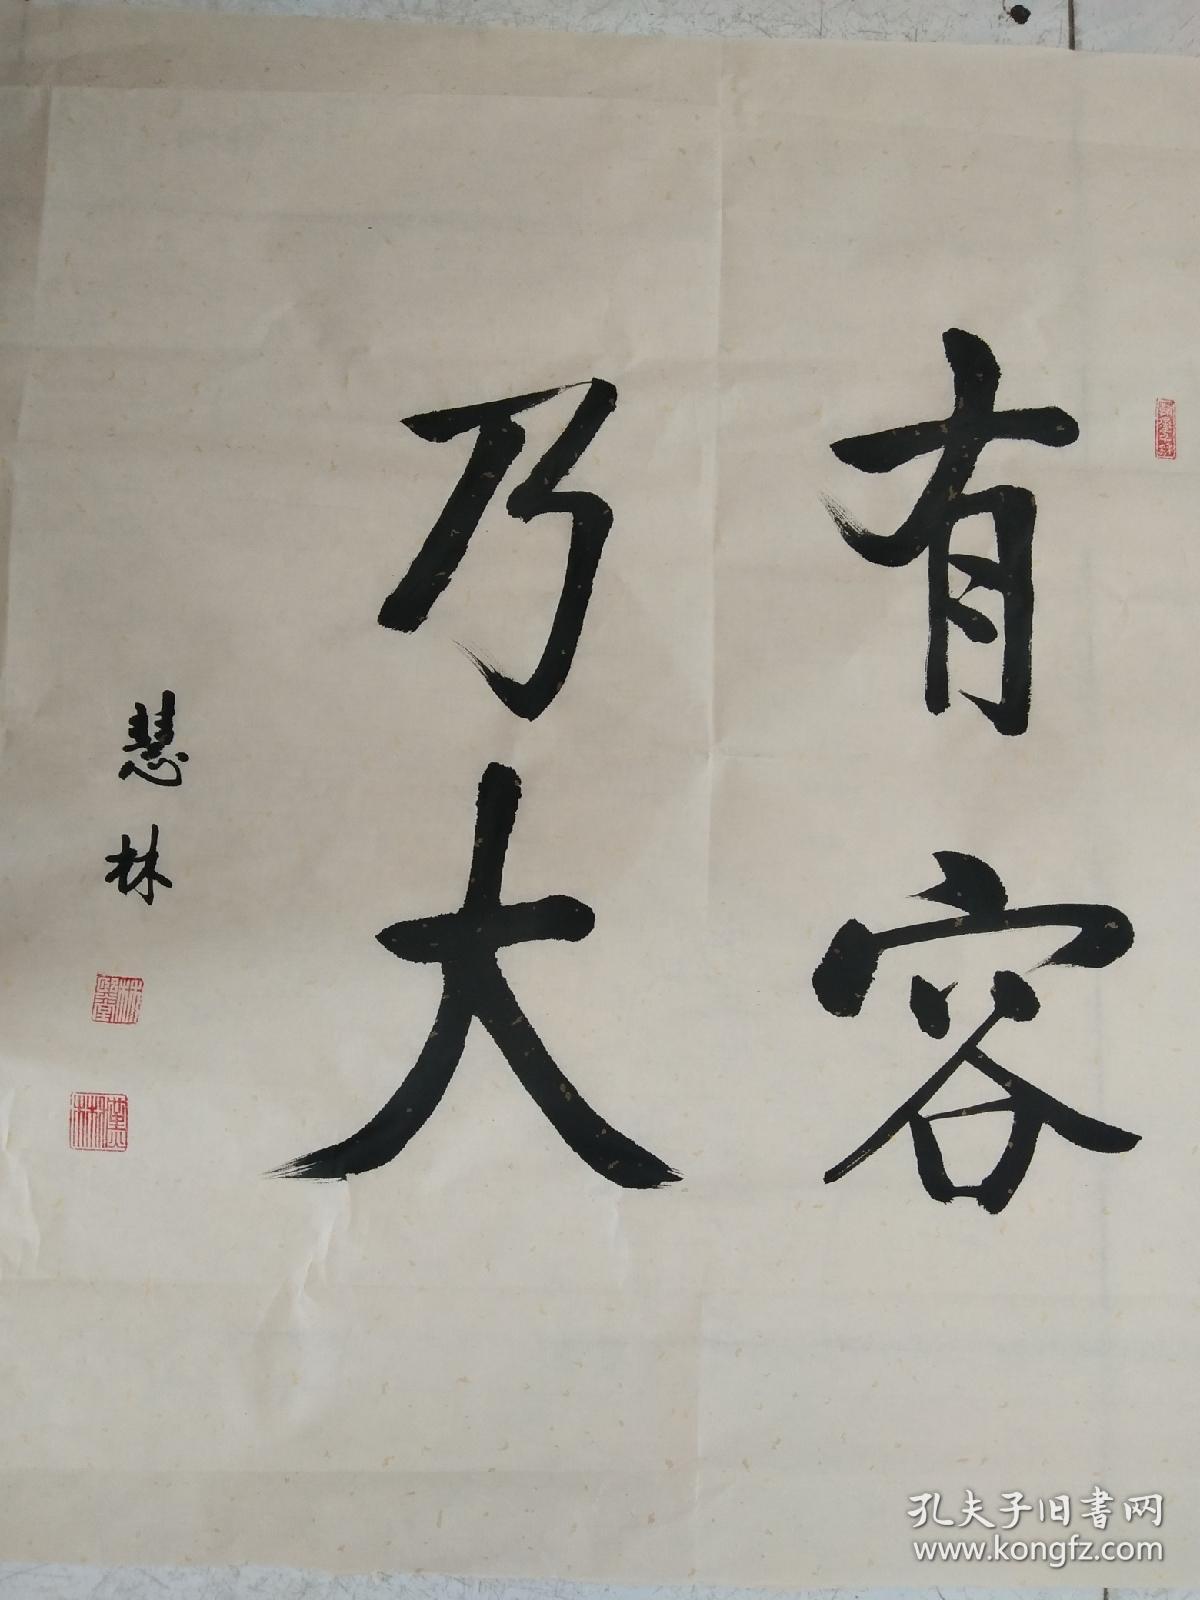 有容
乃大
慧林
孔夫子旧书网
www.kongfz.com